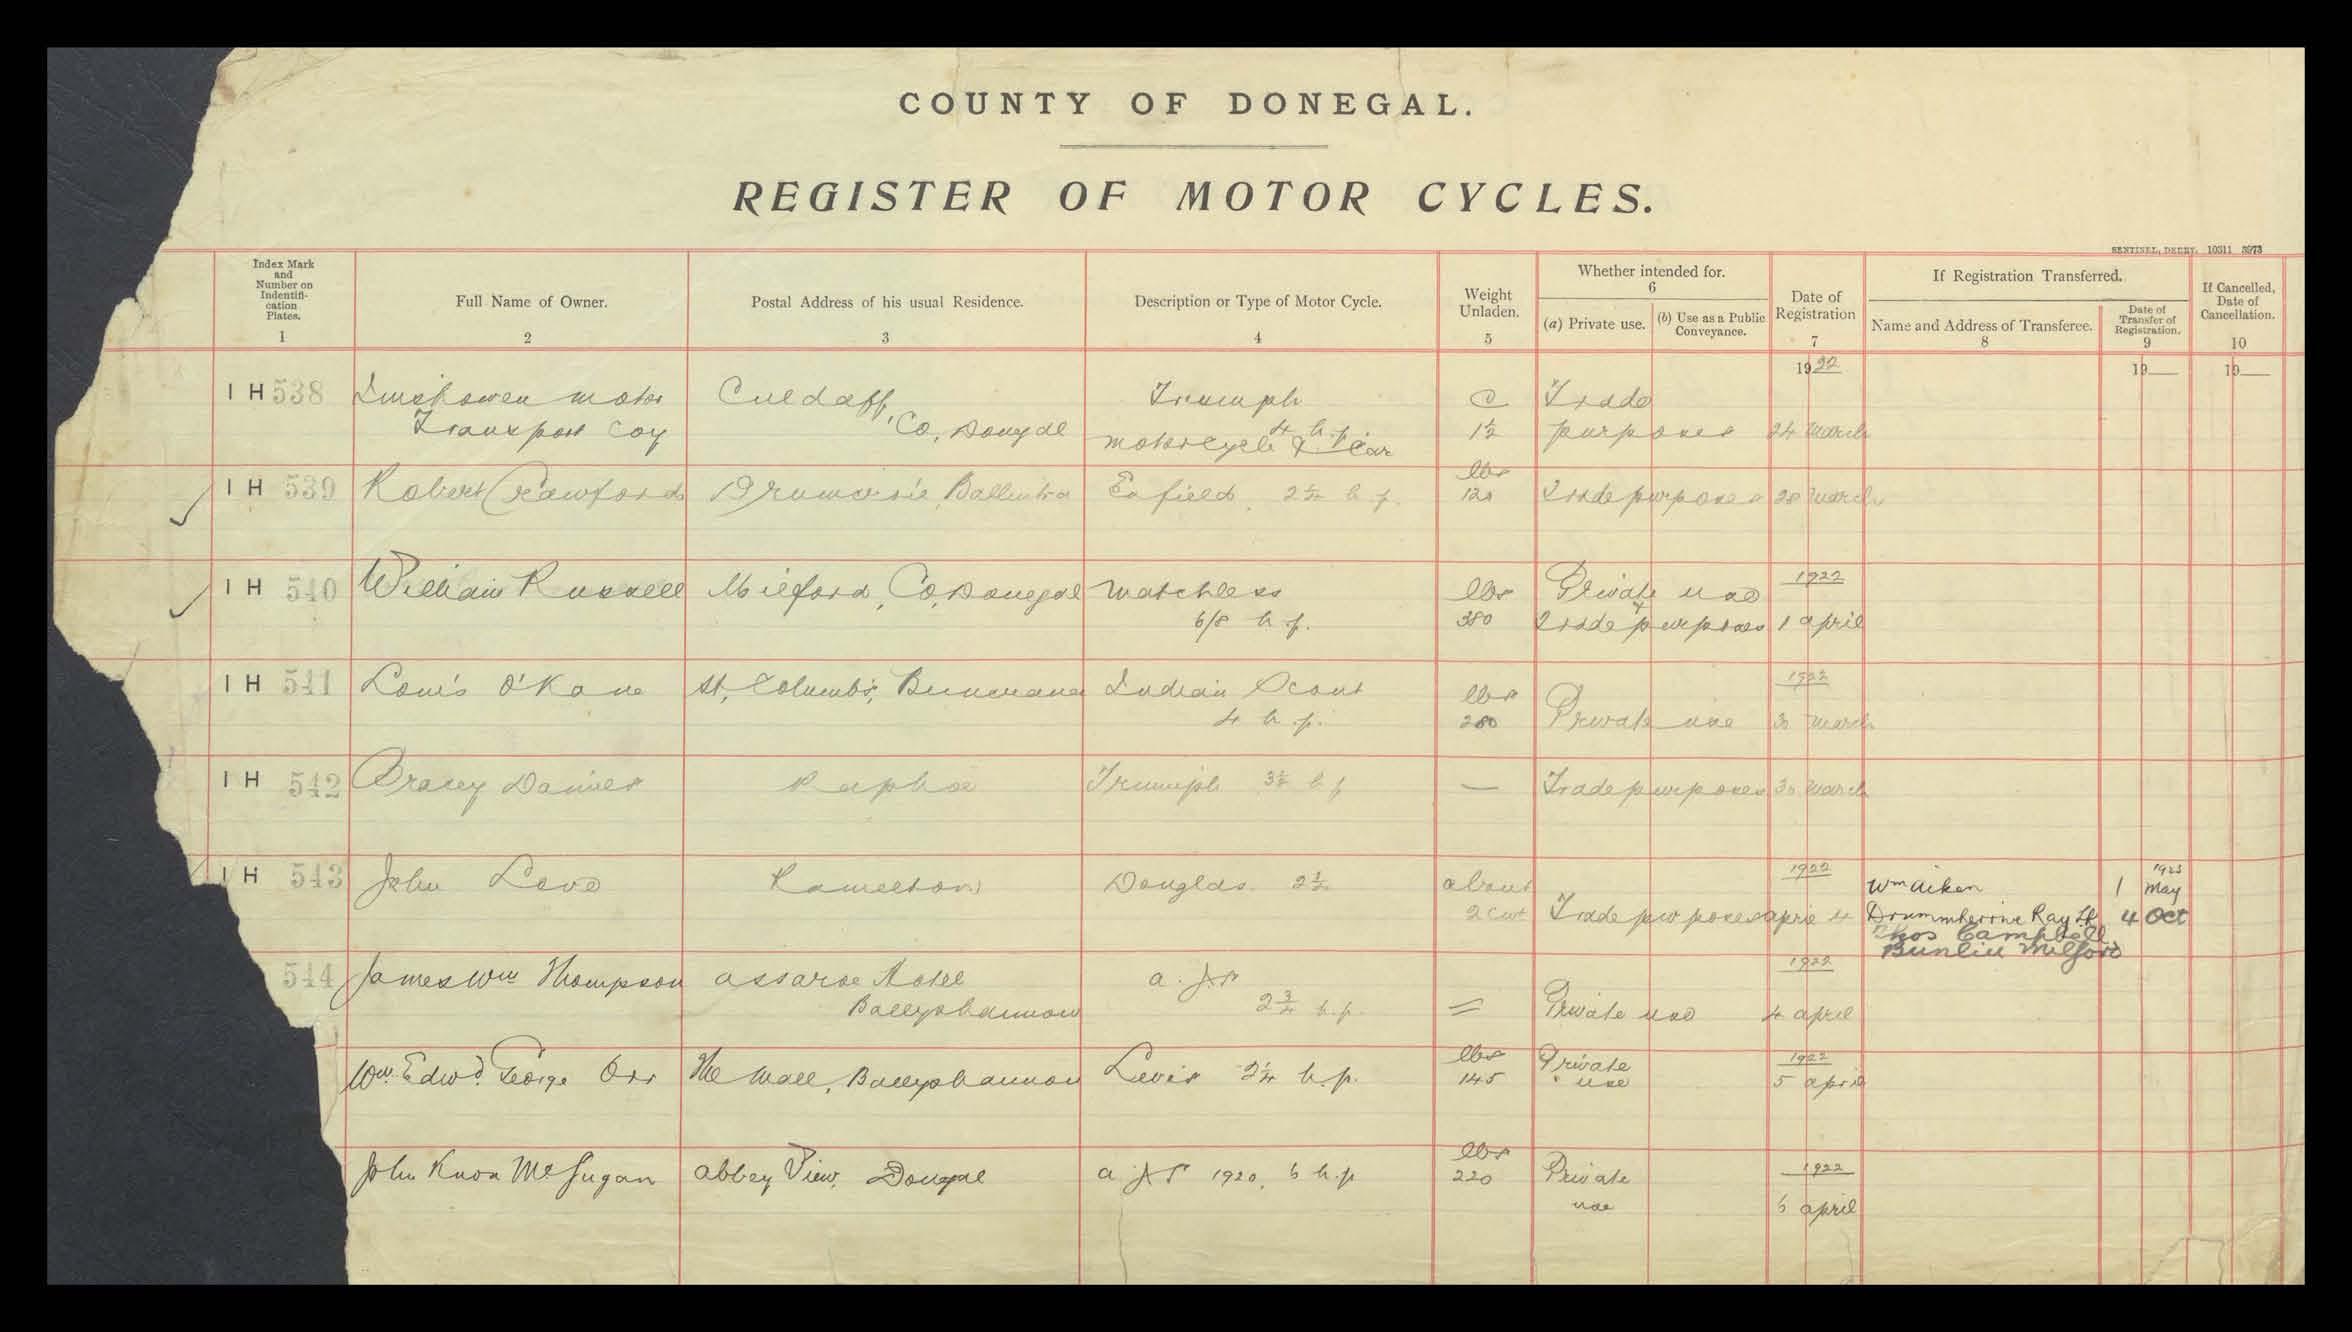 COUNTY OF DONEGAL.
REGISTER OF MOTOR CYCLES.
SENTINEL, DERRY. 10311 3973
Index Mark and Number on Indentifi-cation Plates. 1
Full Name of Owner. 2
Postal Address of his usual Residence. 3
Description or Type of Motor Cycle. 4
Weight Unladen. 5
Whether intended for. 6
(a) Private use.
(b) Use as a Public Conveyance.
Date of Registration 7
If Registration Transferred.
Name and Address of Transferee. 8
Date of Transfer of Registration. 9
If Cancelled, Date of Cancellation. 10
1922 19 19
IH 538 Inishowen Motor Culdaff, Triumph C Trade
Transport Coy Co. Donegal 4 h.p. motorcycle & car 1½ purposes 24 March
IH 539 Robert Crawford Ballintra Enfield 2¼ h.p. lbs 120 Trade purposes 28 March
IH 540 William Russell Milford, Co. Donegal Matchless lbs Private use 1922
6/8 h.p. 380 & Trade purposes 1 April
IH 541 Louis O'Kane St. Columb's, Buncrana Indian Scout lbs 1922
4 h.p. 280 Private use 30 March
IH 542 Bracey Daniels Raphoe Triumph 3½ h.p — Trade purposes 30 March
IH 543 John Love Ramelton Douglas 2½ about 1922 Wm Aiken 1 1923 May
2 cwt Trade purposes April 4 Drummherrive Ray 4 Oct
Thos Campbell
Bunlin Milford
544 James Wm Thompson Assaroe Hotel A.J.S 1922
Ballyshannon 2¾ h.p. = Private use 4 April
Wm. Edwd. George Orr The Mall, Ballyshannon Levis 2¼ h.p. lbs 145 Private use 1922 5 April
John Knox McGugan Abbey View, Donegal A JS 1920, 6 h.p lbs 220 Private 1922
use 6 April